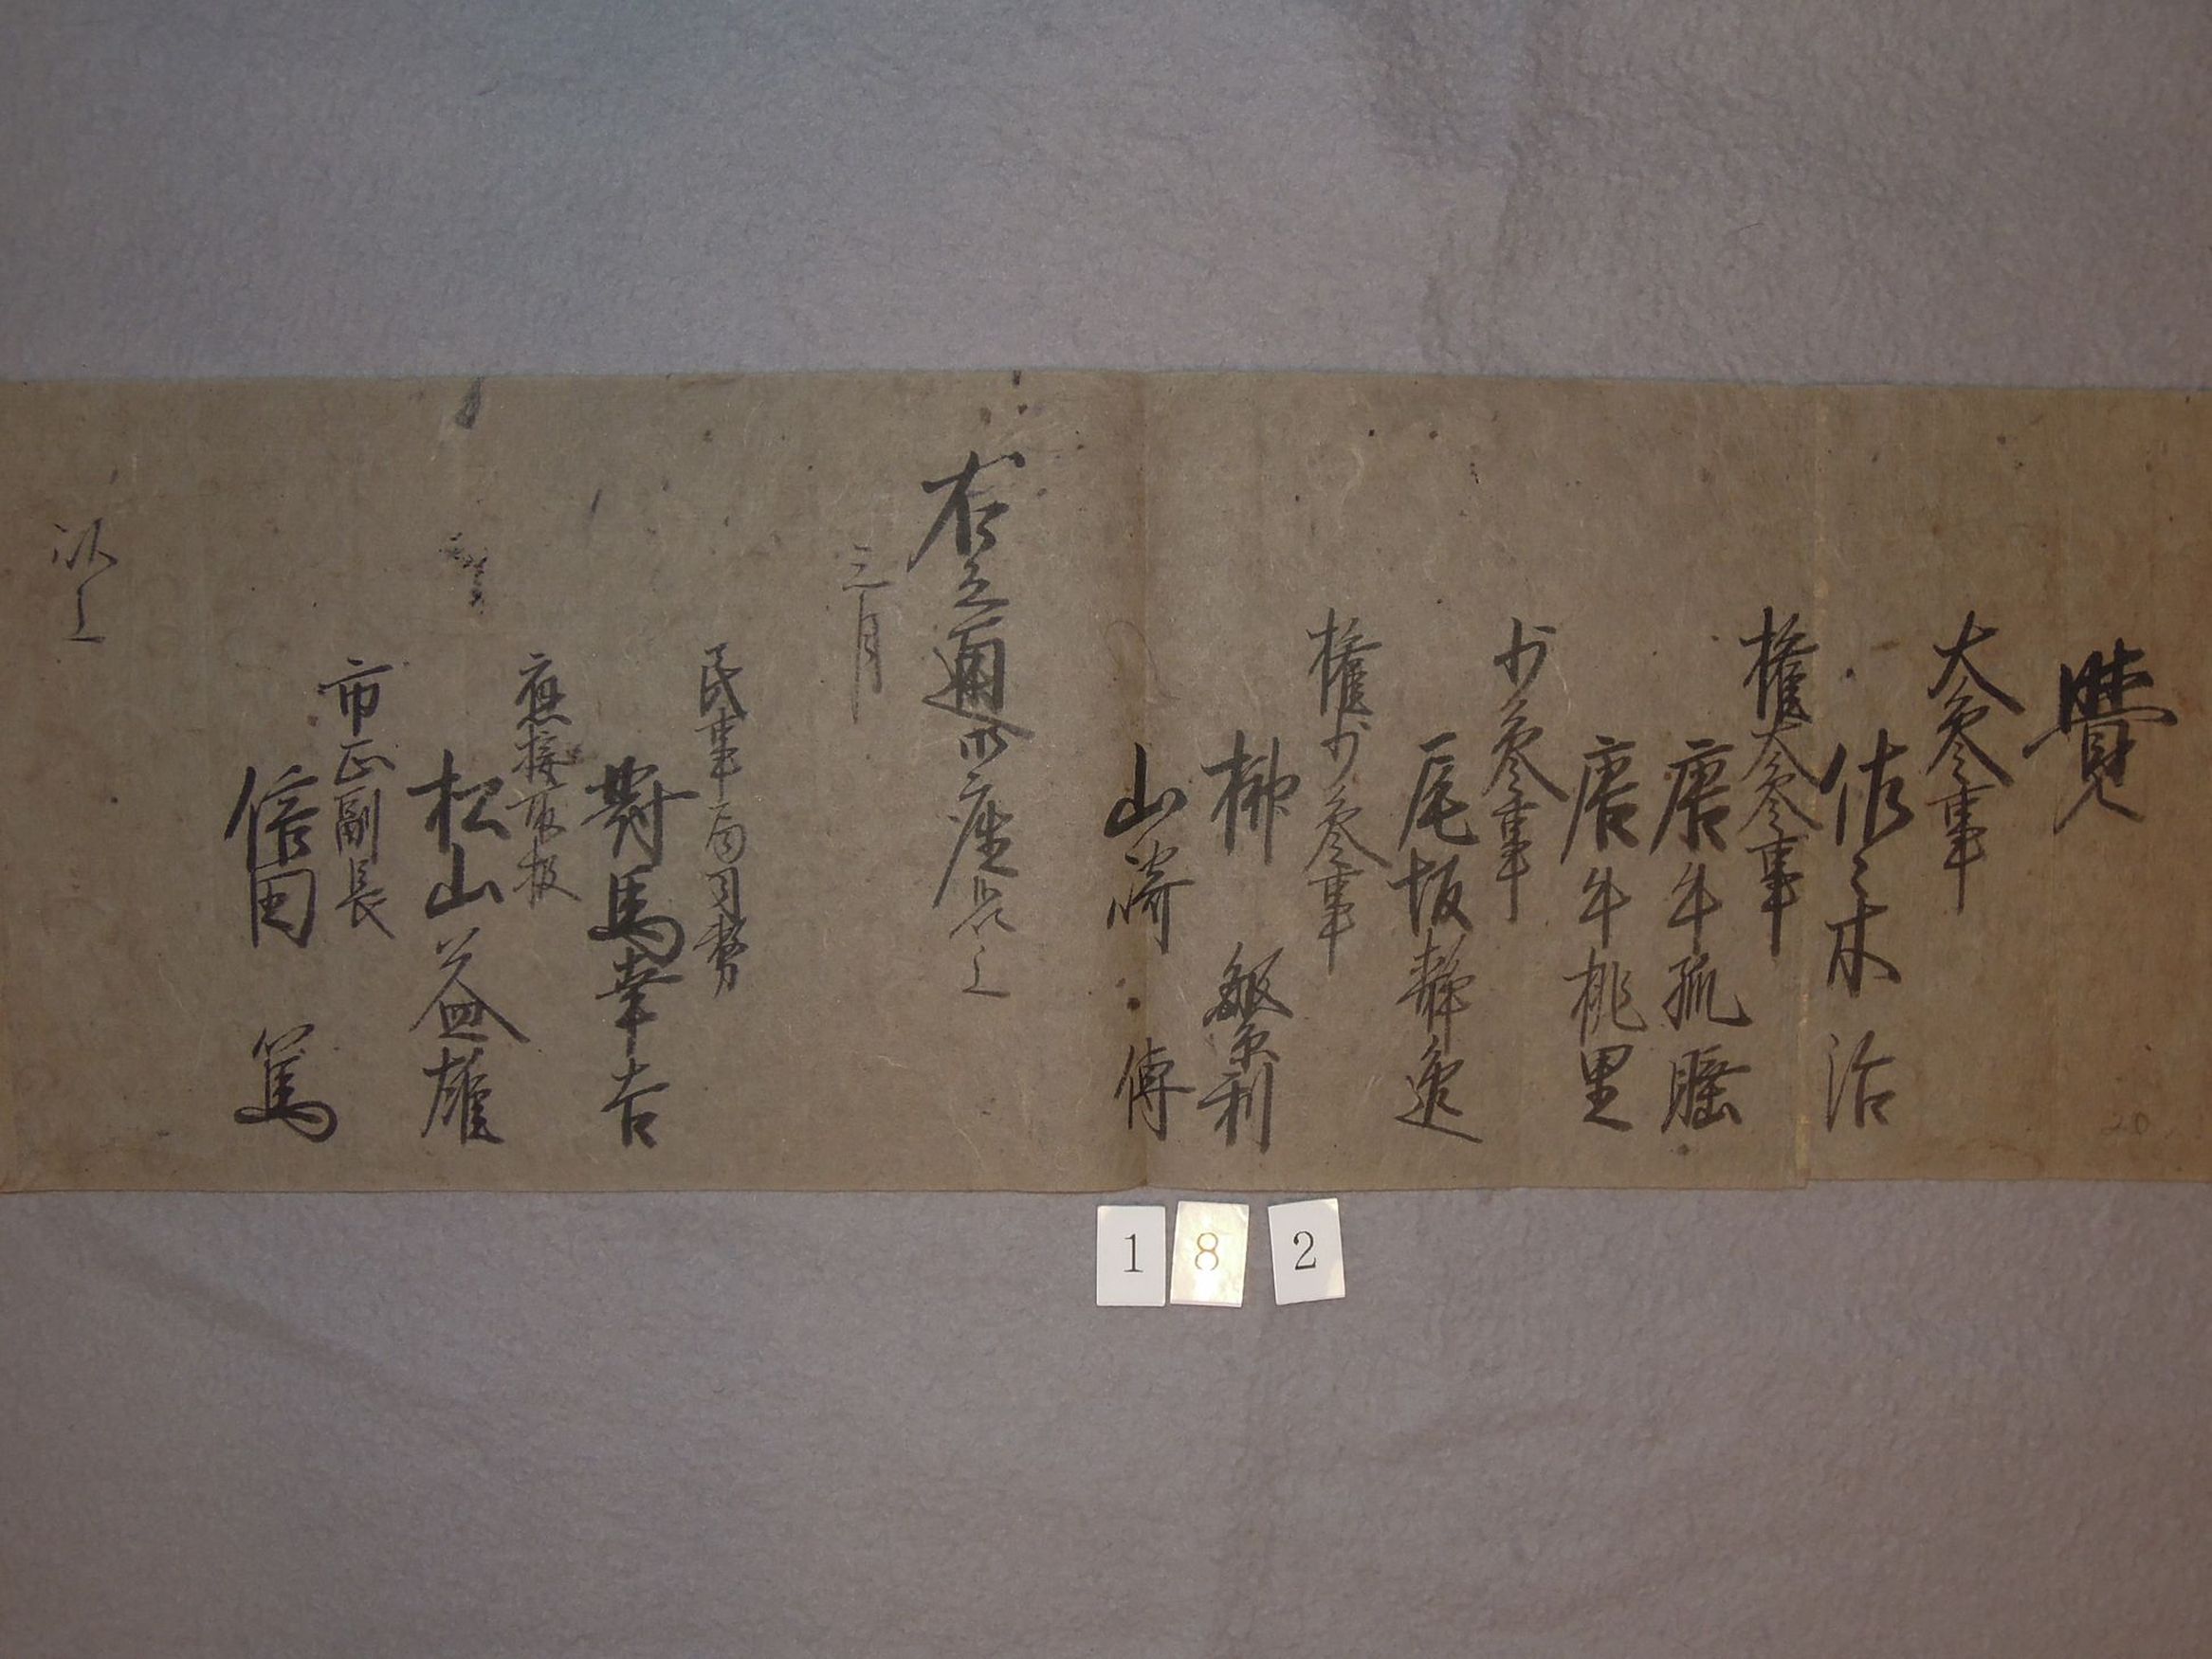 覺
大参事
佐々木 治
権大参事
唐牛孤瑶
唐牛桃里
少参事
尾坂静逸
権少参事
柳 繁利
山崎 傳
右之通御座候已上
三月
民事局司勢
對馬幸吉
應接取扱
松山益雄
市正副長
信田 篤
以上
1 8 2
20